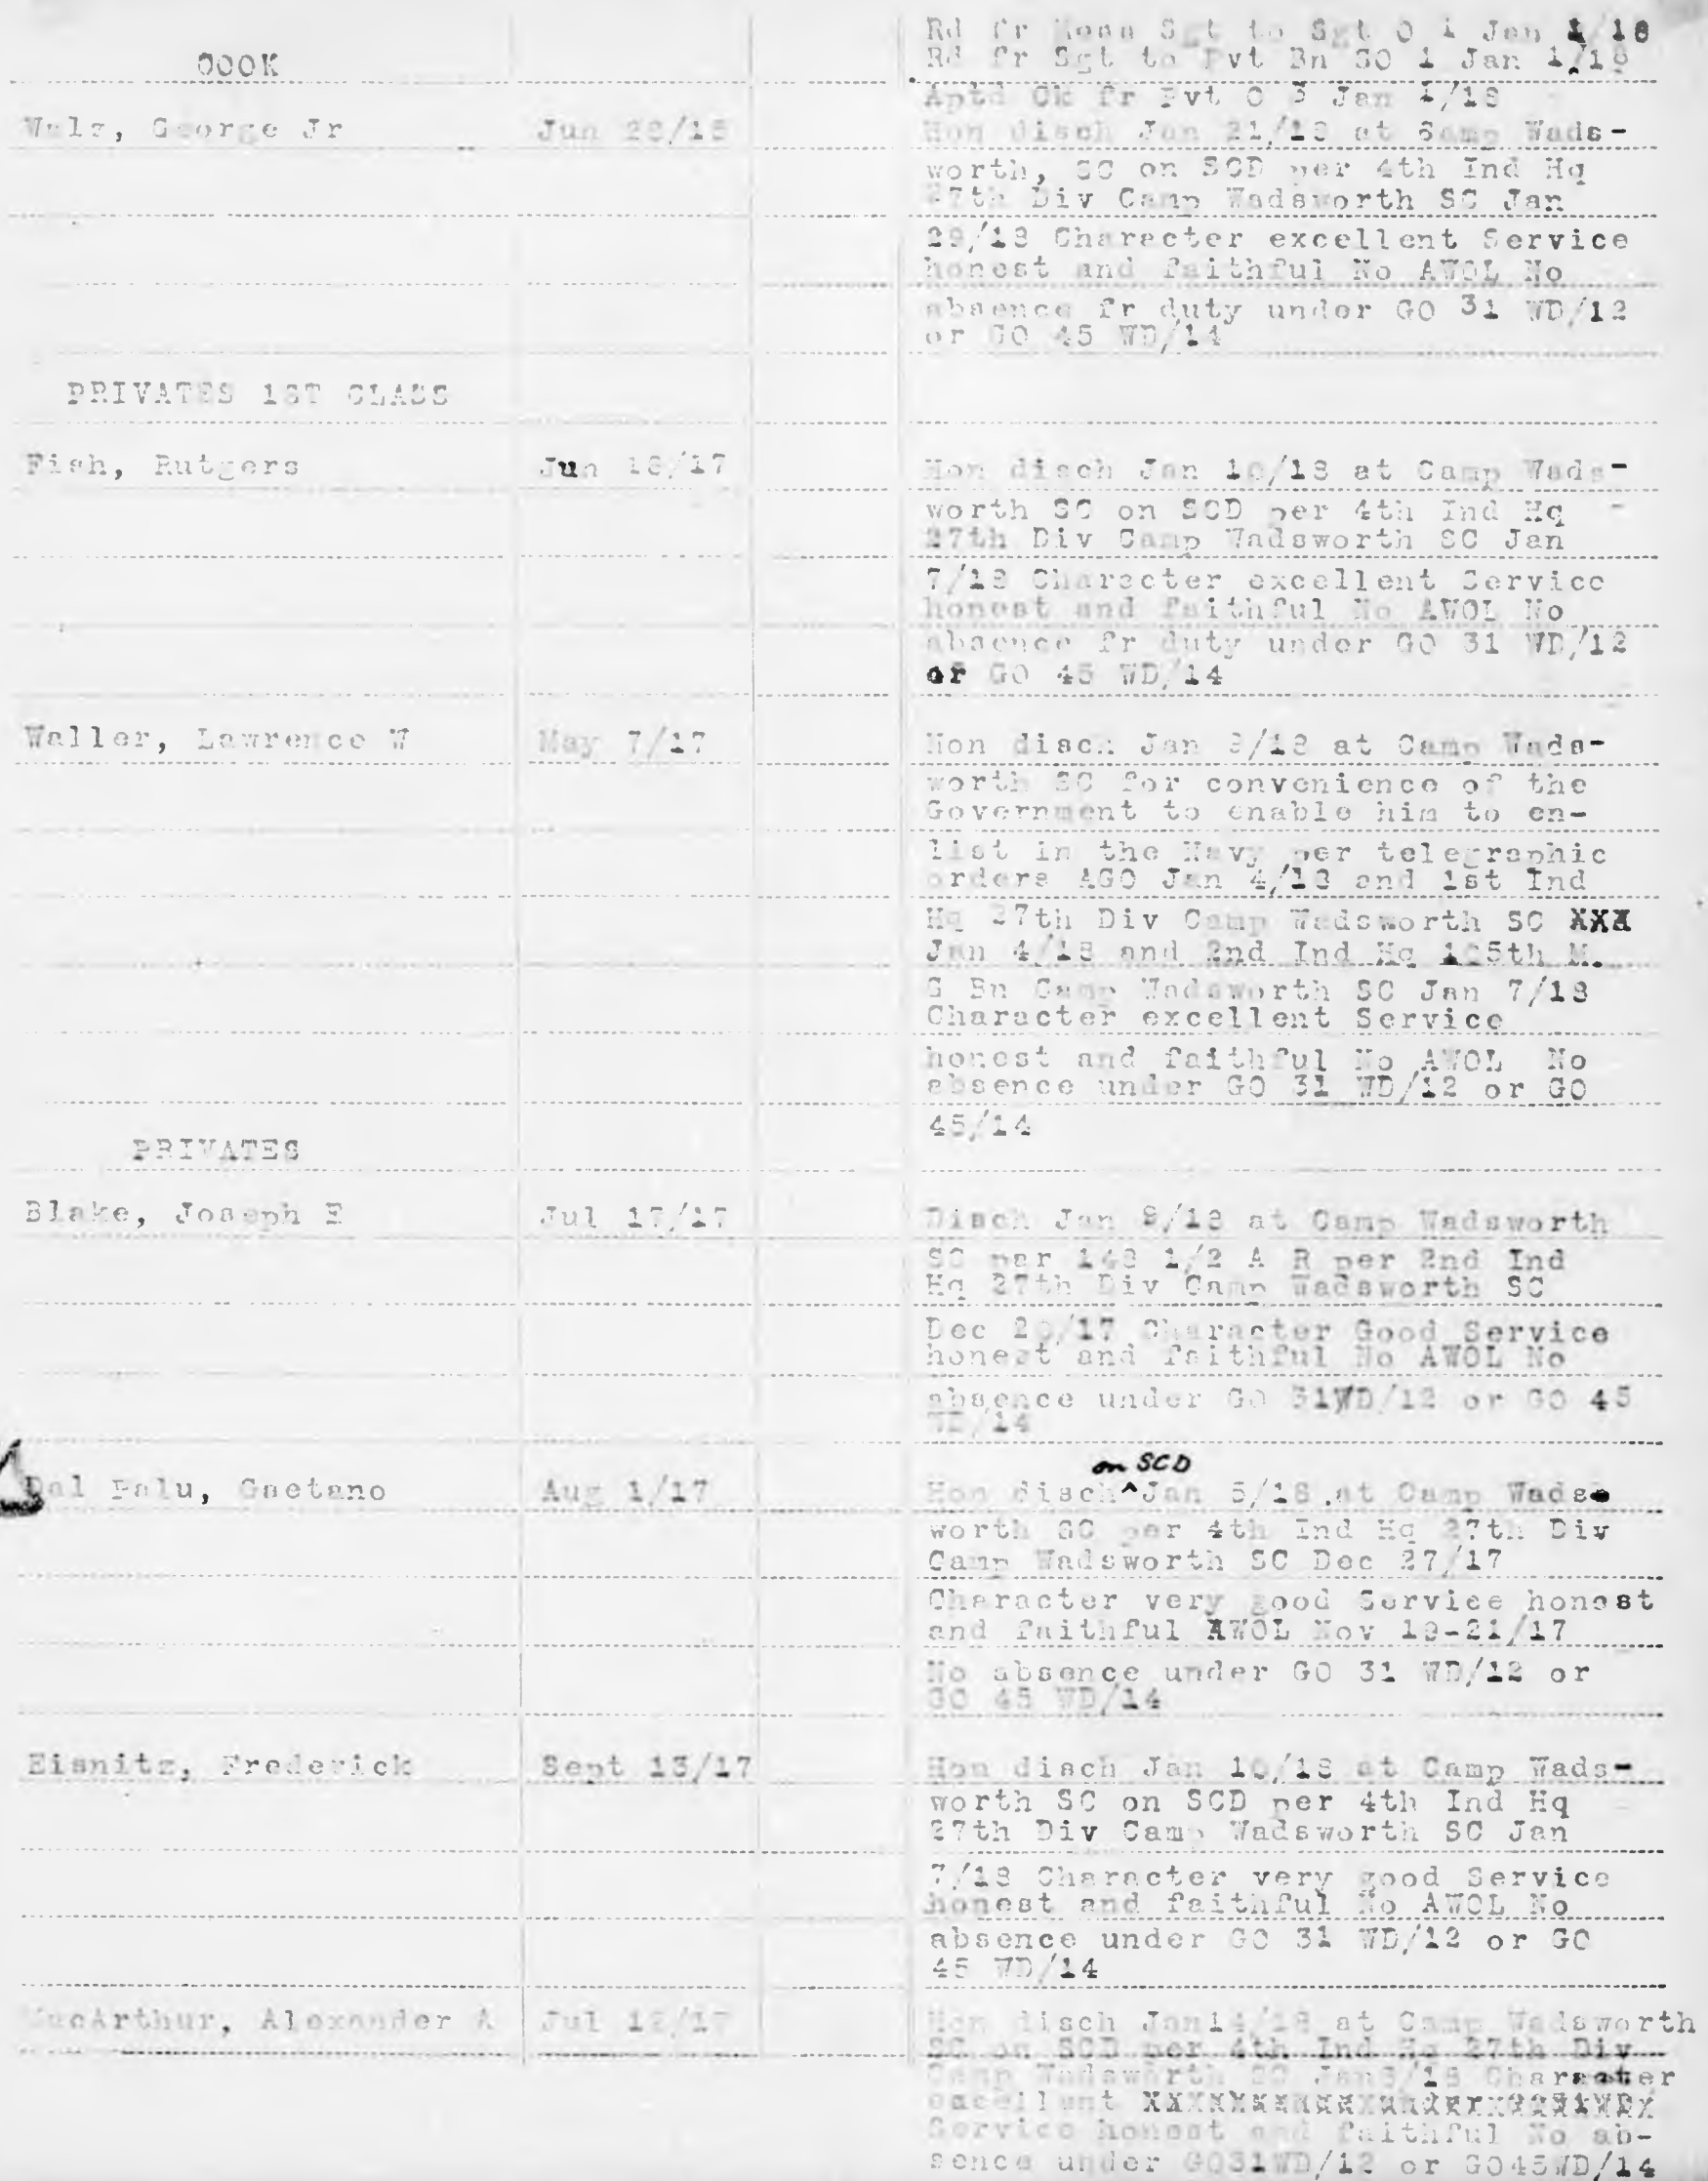 Rd fr Mess Sgt to Sgt O 1 Jan 1/18
COOK
Rd fr Sgt to Pvt Bn SO 1 Jan 1/18
Aptd Ck fr Pvt O 3 Jan 1/18
Walz, George Jr Jun 28/15 Hon disch Jan 21/18 at Camp Wads-
worth, SC on SCD per 4th Ind Hq
27th Div Camp Wadsworth SC Jan
29/18 Character excellent Service
honest and faithful No AWOL No
absence fr duty under GO 31 WD/12
or GO 45 WD/14
PRIVATES 1ST CLASS
Fish, Rutgers Jun 18/17 Hon disch Jan 10/18 at Camp Wads-
worth SC on SCD per 4th Ind Hq
27th Div Camp Wadsworth SC Jan
7/18 Character excellent Service
honest and faithful No AWOL No
absence fr duty under GO 31 WD/12
or GO 45 WD/14
Waller, Lawrence W May 7/17 Hon disch Jan /18 at Camp Wads-
worth SC for convenience of the
Government to enable him to en-
list in the Navy per telegraphic
orders AGO Jan 4/18 and 1st Ind
Hq 27th Div Camp Wadsworth SC XXX
Jan 4/18 and 2nd Ind Hq 105th M.
G Bn Camp Wadsworth SC Jan 7/18
Character excellent Service
honest and faithful No AWOL No
absence under GO 31 WD/12 or GO
45/14
PRIVATES
Blake, Joseph E Jul 17/17 Disch Jan /18 at Camp Wadsworth
SC par 148 1/2 A R per 2nd Ind
Hq 27th Div Camp Wadsworth SC
Dec /17 Character Good Service
honest and faithful No AWOL No
absence under GO 31WD/12 or GO 45
WD/14
on SCD
Dal Palu, Gaetano Aug 1/17 Hon disch ^ Jan 5/18 at Camp Wads-
worth SC per 4th Ind Hq 27th Div
Camp Wadsworth SC Dec 27/17
Character very good Service honest
and faithful AWOL Nov 19-21/17
No absence under GO 31 WD/12 or
GO 45 WD/14
Eisnitz, Frederick Sept 13/17 Hon disch Jan 10/18 at Camp Wads-
worth SC on SCD per 4th Ind Hq
27th Div Camp Wadsworth SC Jan
7/18 Character very good Service
honest and faithful No AWOL No
absence under GO 31 WD/12 or GO
45 WD/14
MacArthur, Alexander A Jul 12/17 Hon disch Jan14/18 at Camp Wadsworth
SC on SCD per 4th Ind Hq 27th Div
Camp Wadsworth SC Jan8/18 Character
excellent
Service honest and faithful No ab-
sence under GO31WD/12 or GO45WD/14